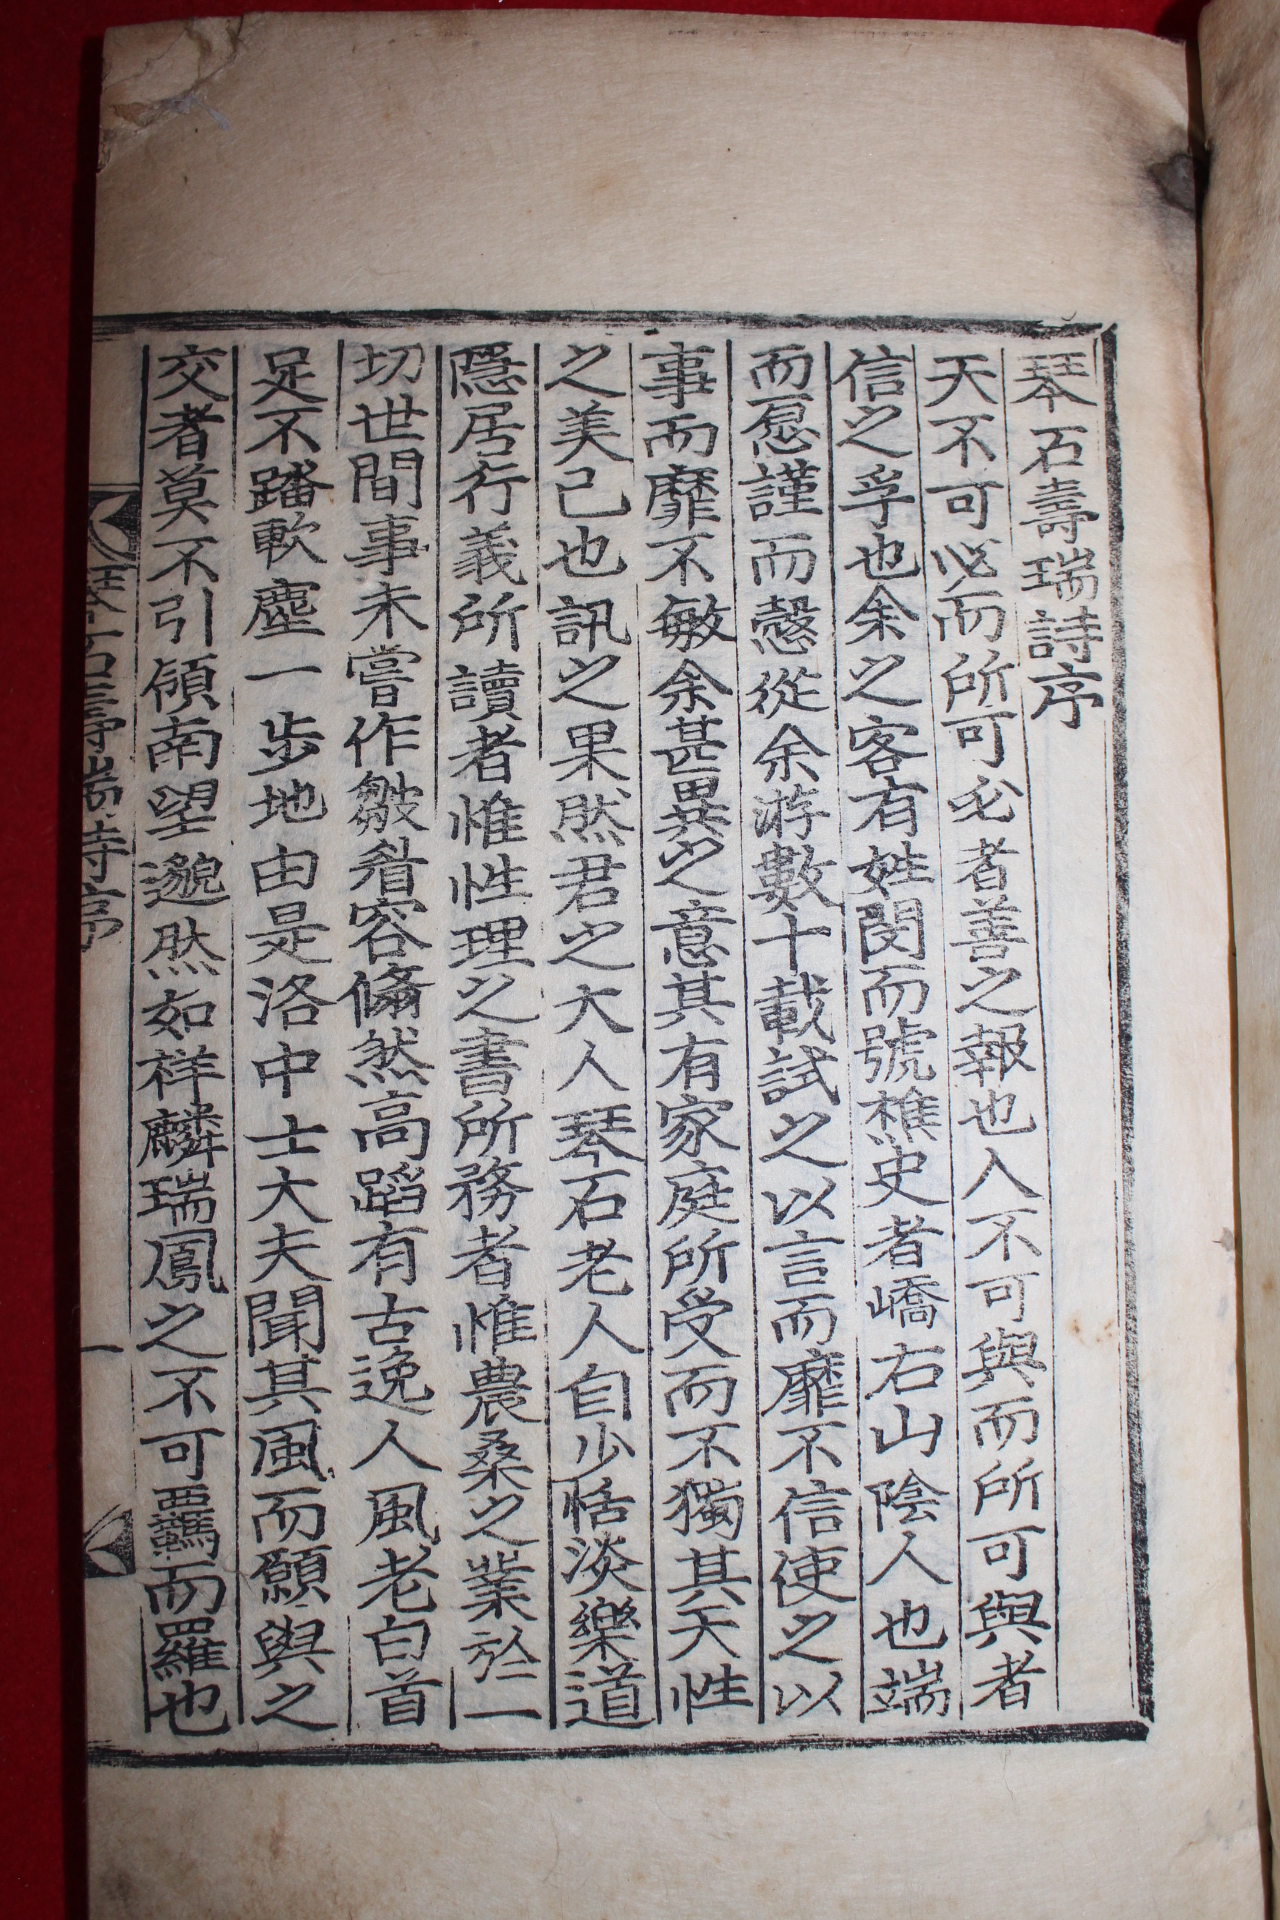 琴石壽瑞詩序
天不可必而所可必者善之報也人不可與而所可與者
信之孚也余之客有姓閔而號樵史者嶠右山陰人也端
而愿謹而慤從余游數十載試之以言而靡不信使之以
事而靡不敏余甚異之意其有家庭所受而不獨其天性
之美己也訊之果然君之大人琴石老人自少恬淡樂道
隱居行義所讀者惟性理之書所務者惟農桑之業於一
切世間事未嘗作皺眉容翛然高蹈有古逸人風老白首
足不踏軟塵一步地由是洛中士大夫聞其風而願與之
交者莫不引領南望邈然如祥麟瑞鳳之不可羈而羅也
琴石壽瑞詩序
一